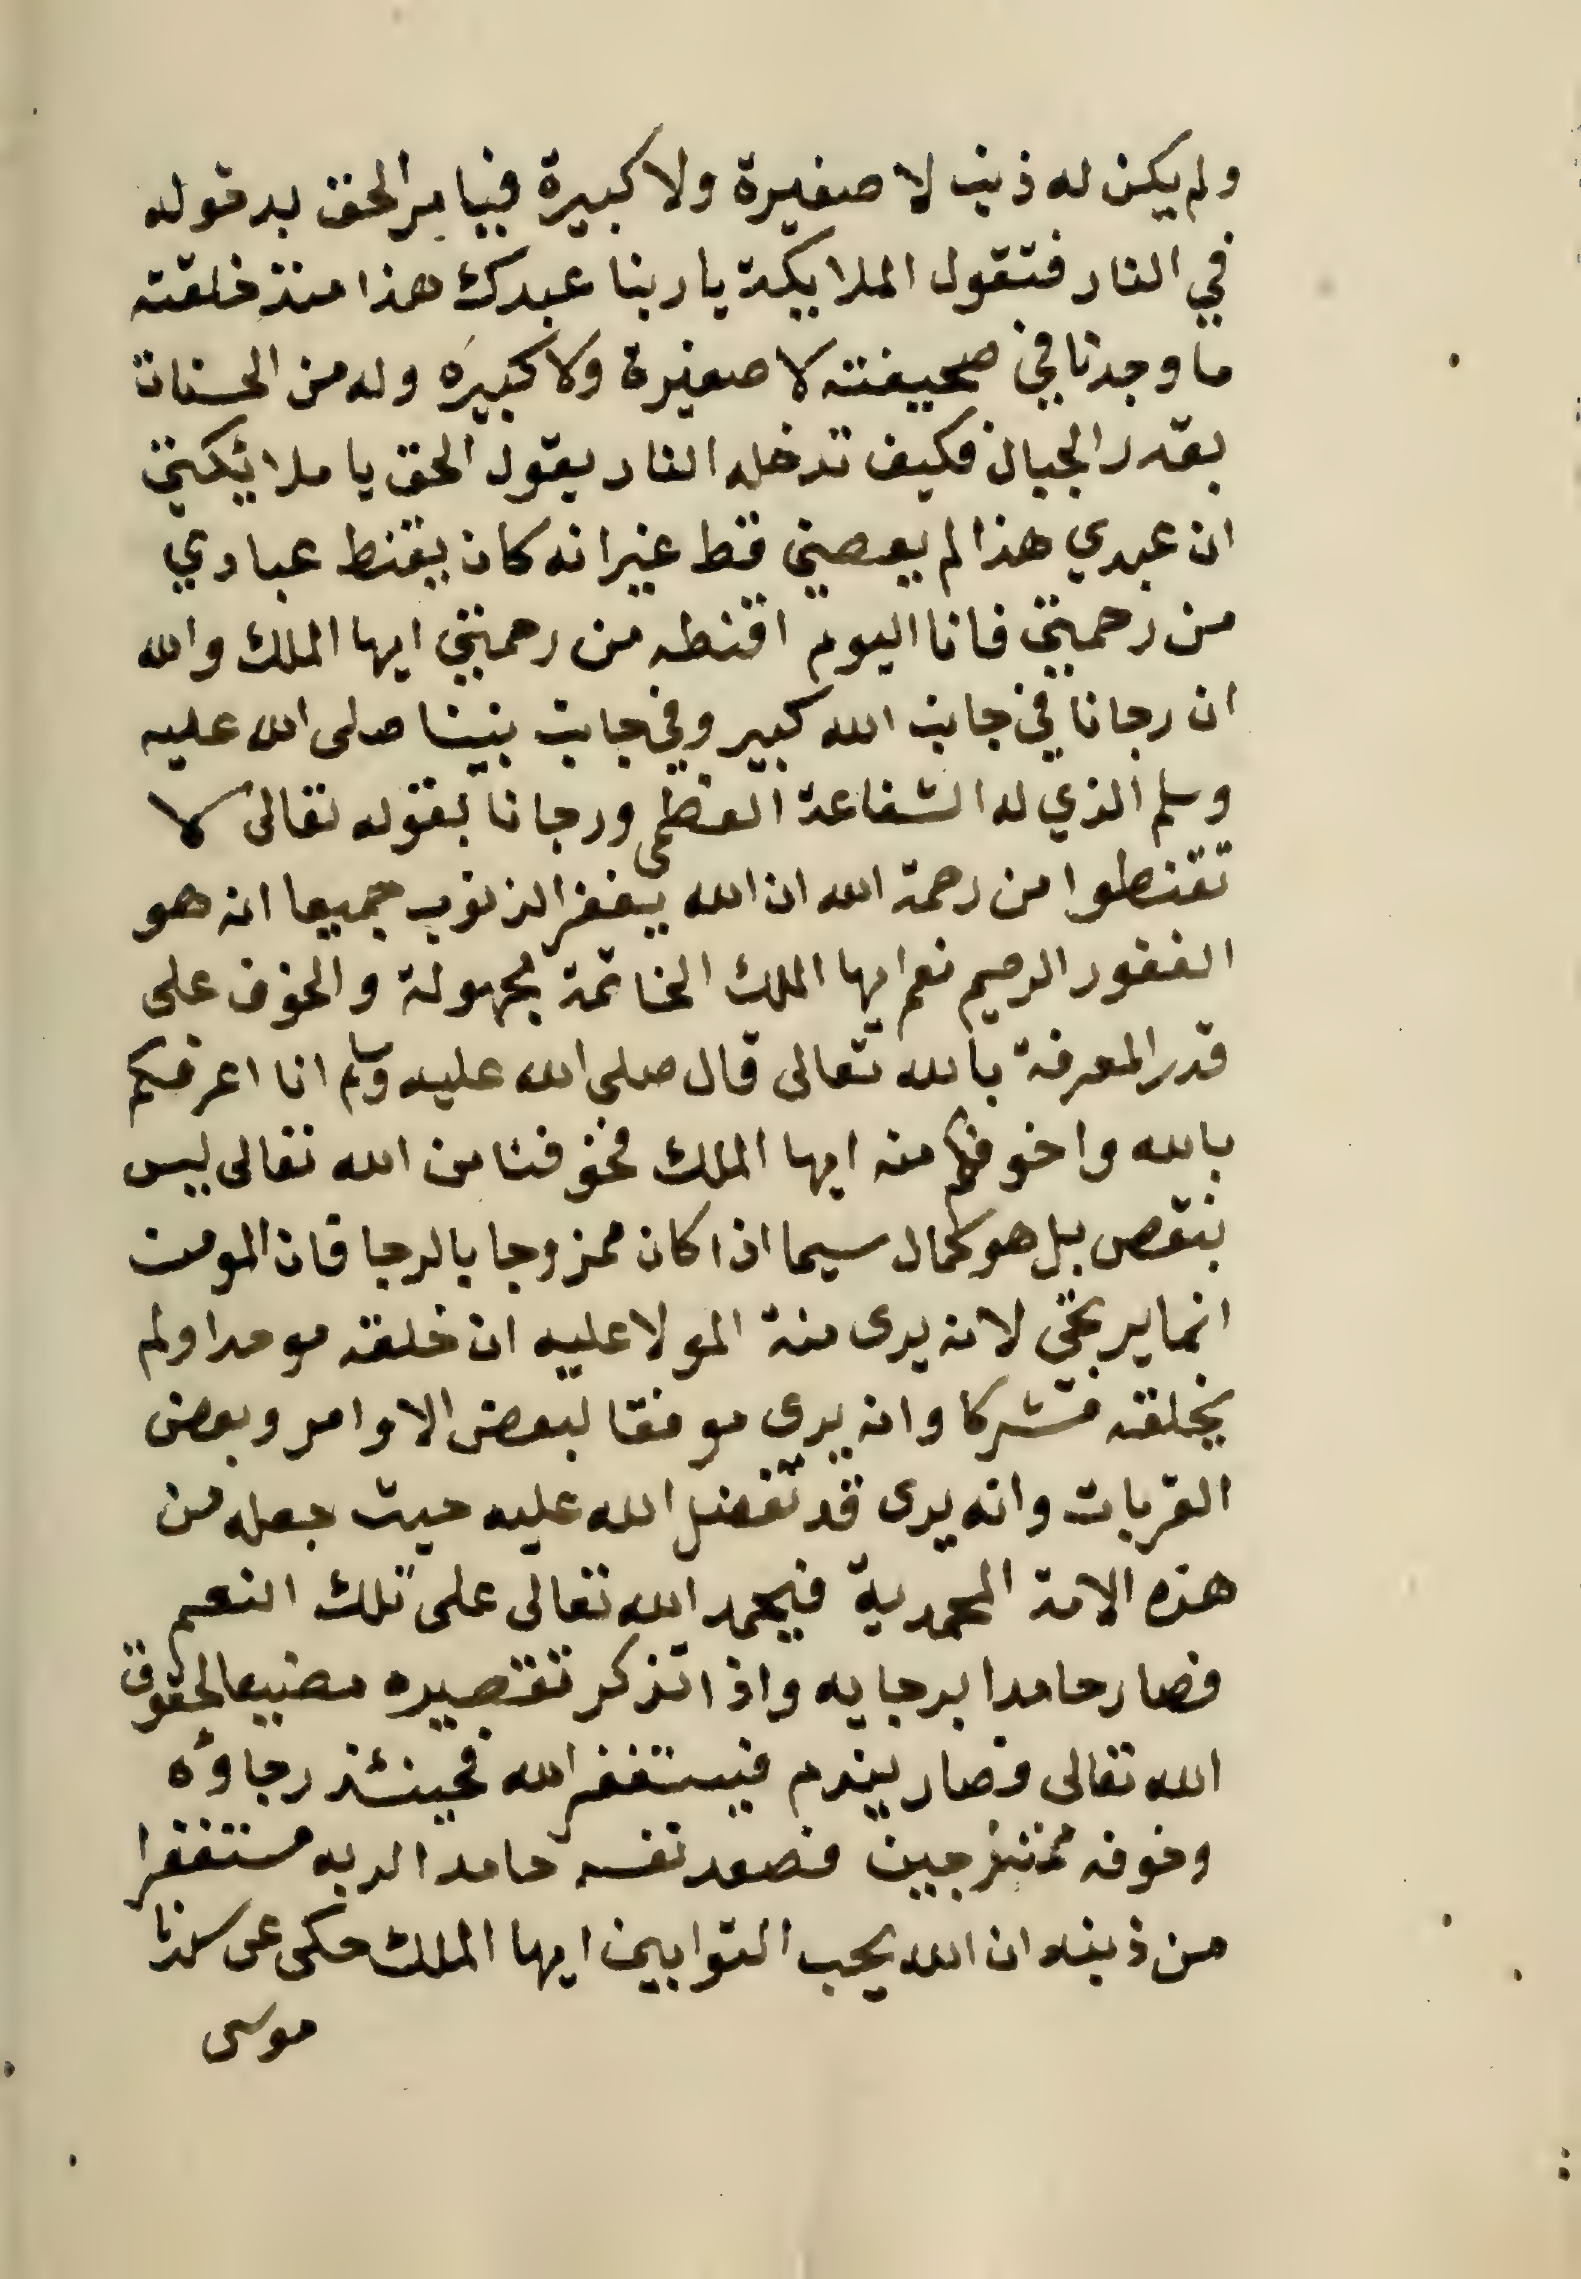 ولم يكن له ذنب لا صغيرة ولا كبيرة فيامر الحق بدخوله
في النار فتقول الملايكة يا ربنا عبدك هذا منذ خلقته
ما وجدنا في صحيفته لا صغيرة ولا كبيره وله من الحسنات
بقدر الجبال فكيف تدخله النار يقول الحق يا ملائكتي
ان عبدي هذا لم يعصيني قط غير انه كان يقنط عبادي
من رحمتي فانا اليوم اقنطه من رحمتي ايها الملك والله
ان رجانا في جانب الله كبير وفي جانب نبينا صلى الله عليه
وسلم الذي له الشفاعة العظمى ورجانا بقوله تعالى لا
تقنطوا من رحمة الله ان الله يغفر الذنوب جميعا انه هو
الغفور الرحيم نعم ايها الملك الخاتمة مجهولة والخوف على
قدر المعرفة بالله تعالى قال صلى الله عليه وسلم انا اعرفكم
بالله واخوفكم منه ايها الملك فخوفنا من الله تعالى ليس
بنقص بل هو كمال سيما اذا كان ممزوجا بالرجا فان المومن
انما يرتجي لانه يرى منة المولا عليه ان خلقه موحدا ولم
يخلقه مشركا وانه يرى موفقا لبعض الاوامر وبعض
القربات وانه يرى قد تفضل الله عليه حيث جعله من
هذه الامة المحمدية فيحمد الله تعالى على تلك النعم
فصار حامدا برجايه واذا تذكر تقصيره مضيعا لحقوق
الله تعالى فصار يندم فيستغفر الله فحينئذ رجاؤه
وخوفه ممتزجين فصعد نفسه حامدا لربه مستغفرا
من ذنبه ان الله يحب التوابين ايها الملك حكى عن سيدنا
موسى